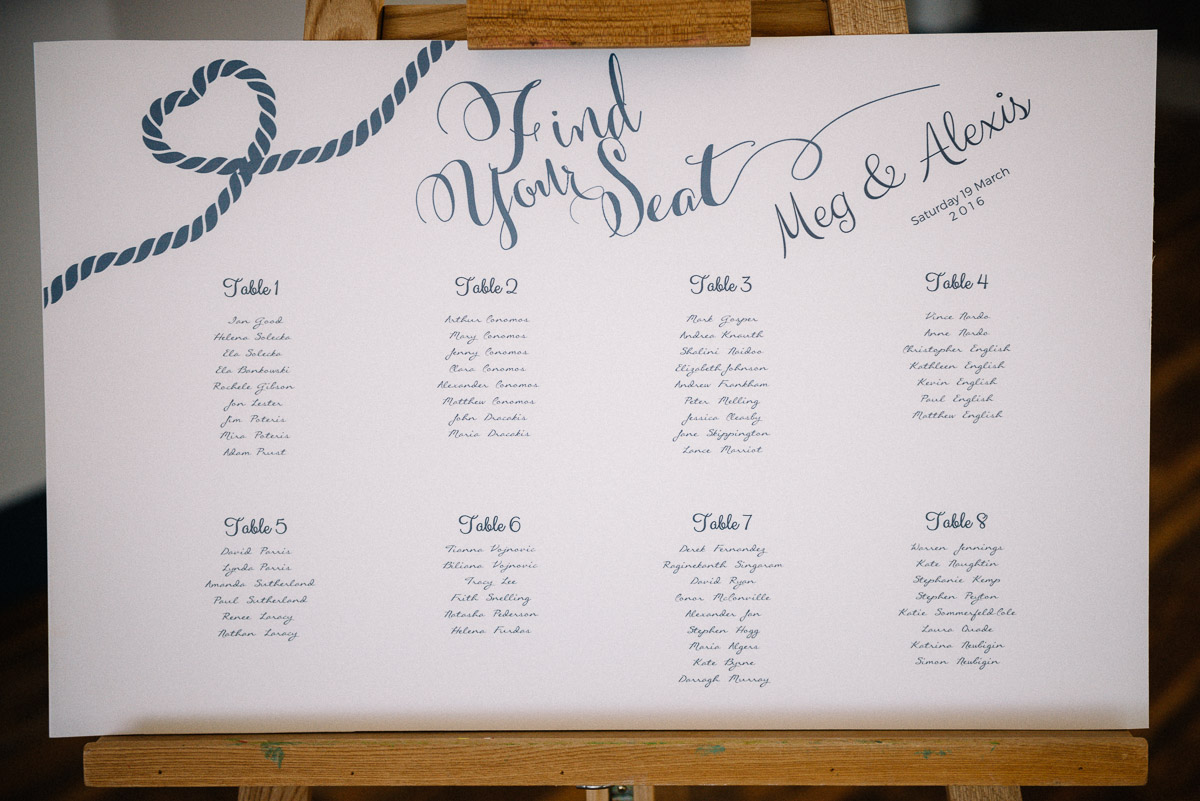 Find
Your Seat
Meg & Alexis
Saturday 19 March
2016
Table 1
Ian Good
Helena Solecka
Ela Solecka
Ela Bankowski
Rochele Gibson
Jon Lester
Jim Poteris
Mira Poteris
Adam Prust
Table 2
Arthur Conomos
Mary Conomos
Jenny Conomos
Clara Conomos
Alexander Conomos
Matthew Conomos
John Dracakis
Maria Dracakis
Table 3
Mark Gasper
Andrea Knauth
Shalini Naidoo
Elizabeth Johnson
Andrew Frankham
Peter Melling
Jessica Cleasby
Jane Skippington
Lance Marriot
Table 4
Vince Nardo
Anne Nardo
Christopher English
Kathleen English
Kevin English
Paul English
Matthew English
Table 5
David Parris
Lynda Parris
Amanda Sutherland
Paul Sutherland
Renee Laracy
Nathan Laracy
Table 6
Tianna Vojnovic
Biliana Vojnovic
Tracy Lee
Frith Snelling
Natasha Pederson
Helena Furdas
Table 7
Derek Fernandez
Raginekanth Singaram
David Ryan
Conor McConville
Alexander Jan
Stephen Hogg
Maria Algers
Kate Byrne
Darragh Murray
Table 8
Warren Jennings
Kate Naughtin
Stephanie Kemp
Stephen Peyton
Katie Sommerfeld-Cole
Laura Quade
Katrina Neubigin
Simon Neubigin